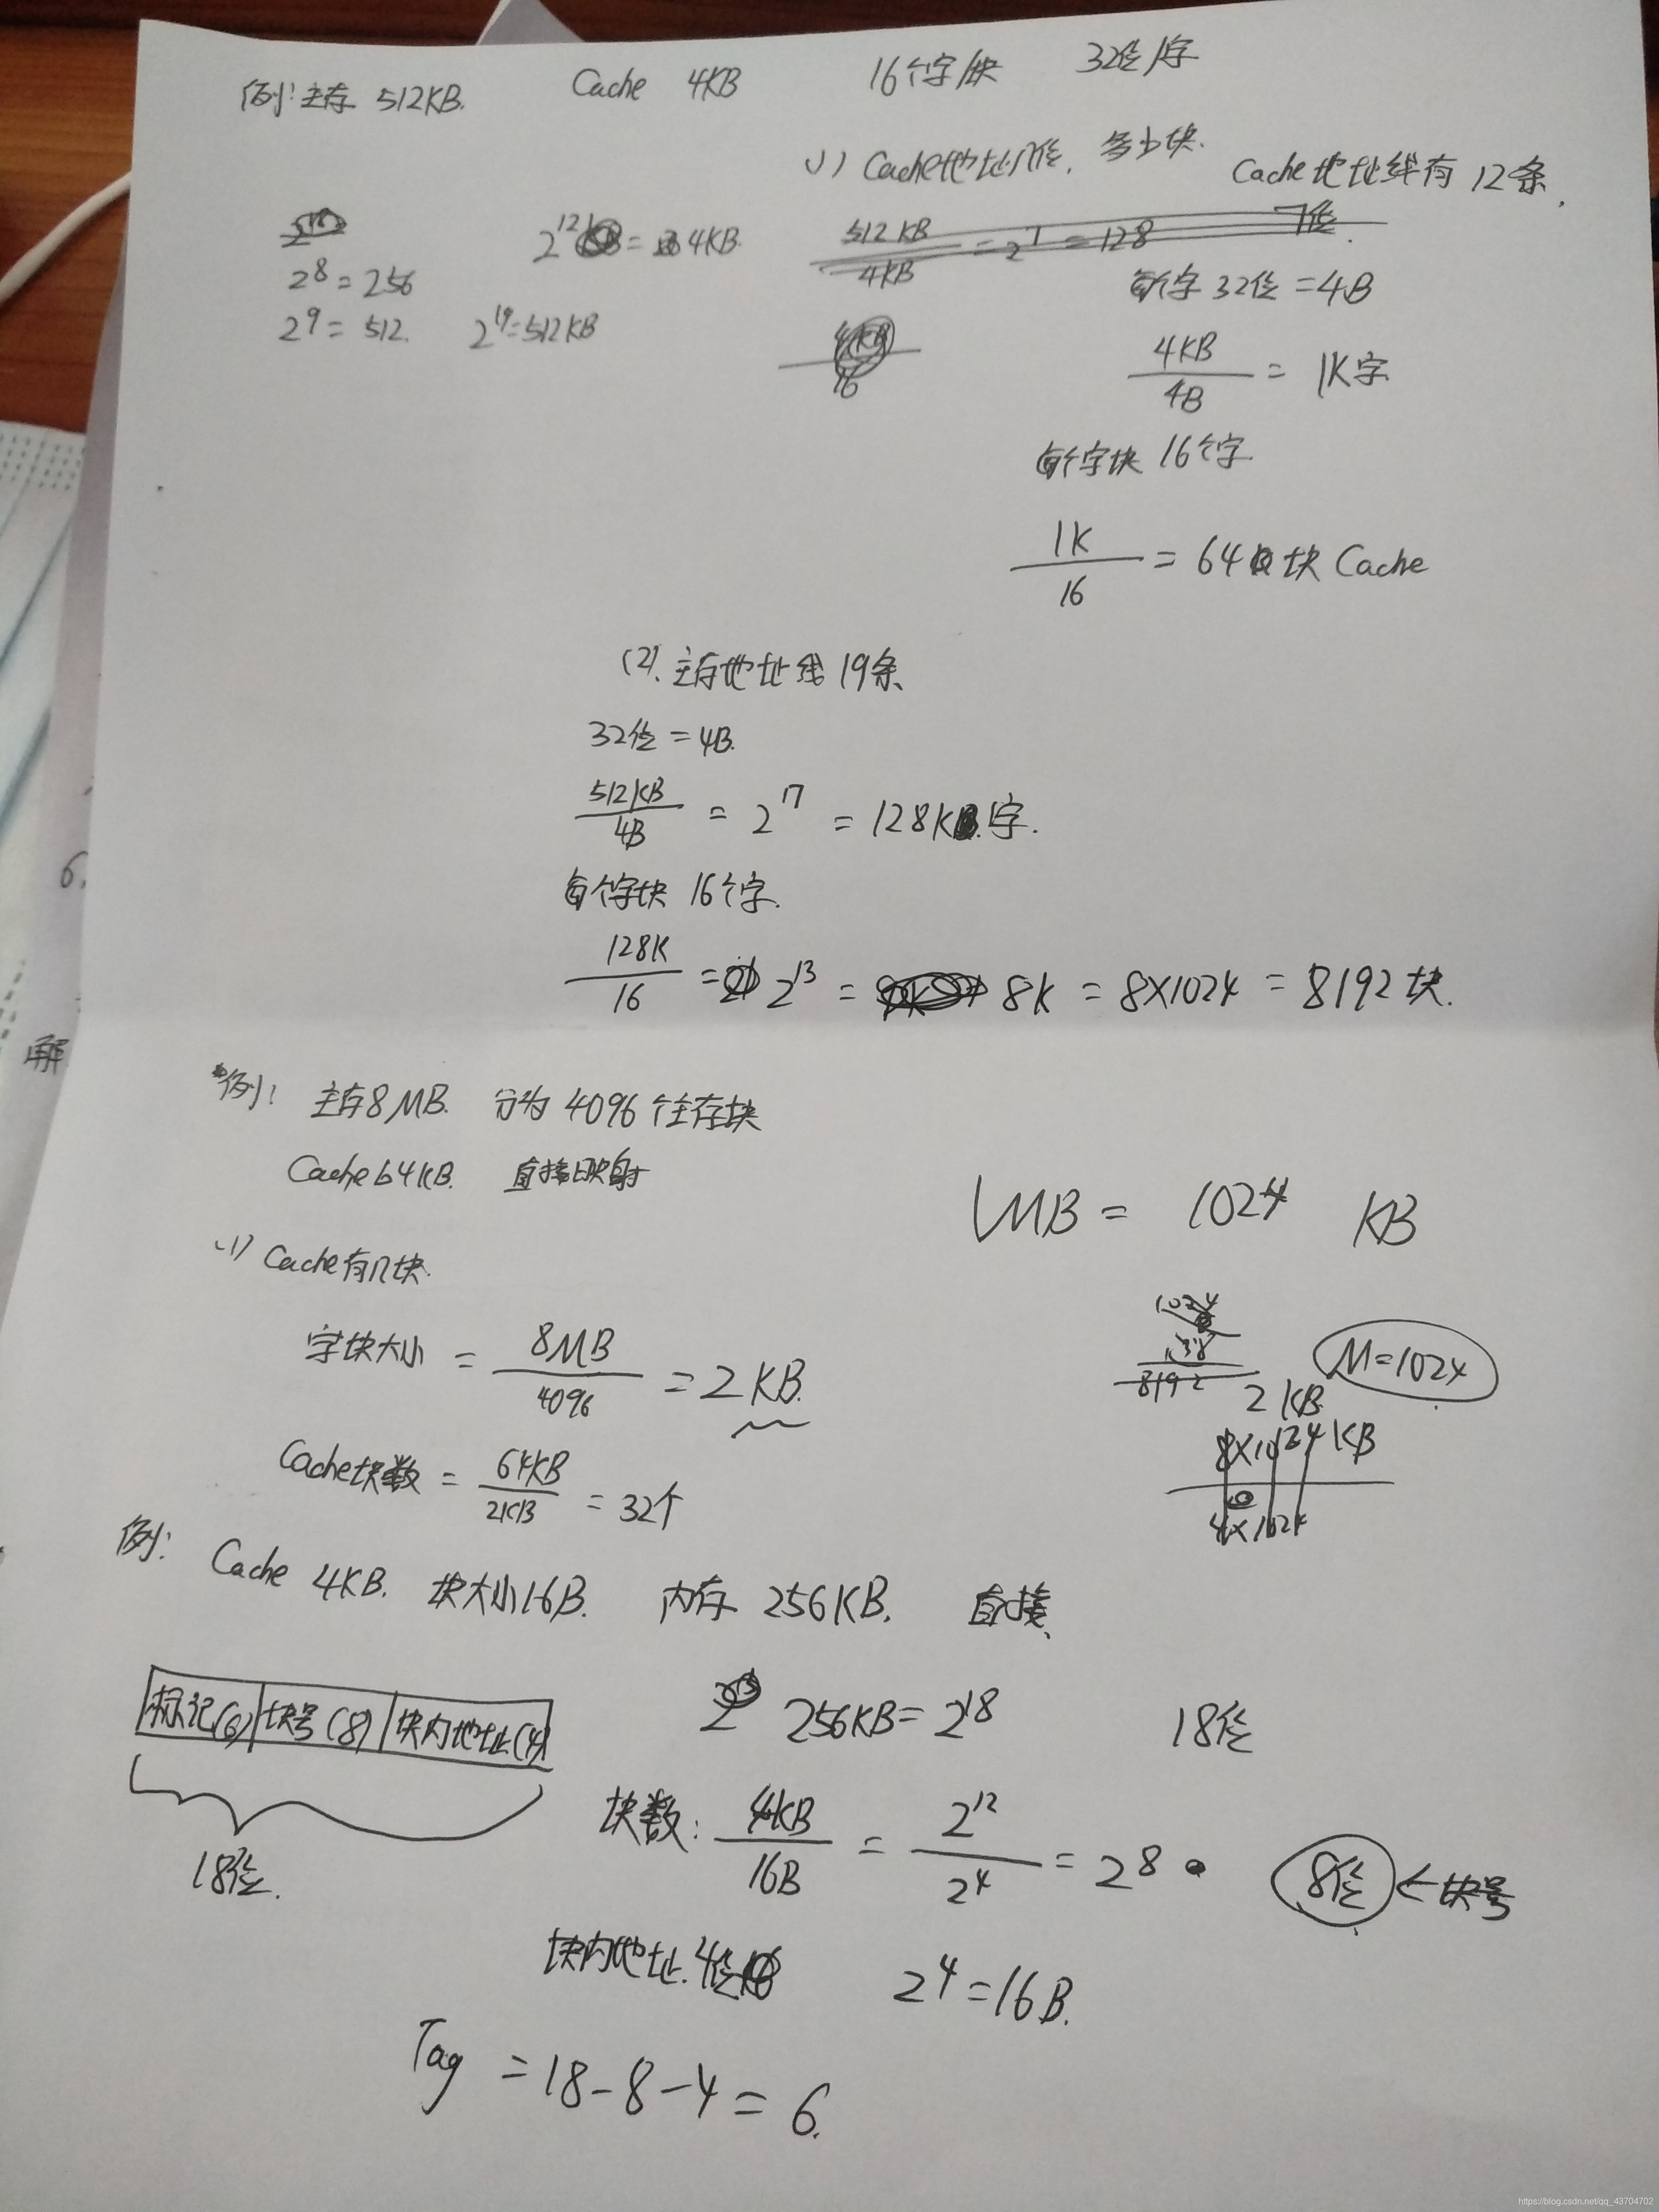 例:主存 512KB. Cache 4KB 16个字/块 32位/字
(1) Cache地址几位, 多少块. Cache地址线有 12条,
2^12 = 4KB. 512KB/4KB = 2^7 = 128 7位.
2^8 = 256
2^9 = 512. 2^19=512KB
每个字 32位 = 4B
4KB/4B = 1K字
每个字块 16个字
1K/16 = 64块 Cache
(2). 主存地址线 19条
32位 = 4B.
512KB/4B = 2^17 = 128K字.
每个字块 16个字.
128K/16 = 2^13 = 8K = 8×1024 = 8192块.
例: 主存8MB. 分为 4096个主存块
Cache64KB. 直接映射
1MB = 1024 KB
(1) Cache有几块.
字块大小 = 8MB/4096 = 2KB.
M=1024
8192
2KB
8×1024KB
4×1024
Cache块数 = 64KB/2KB = 32个
例: Cache 4KB. 块大小16B. 内存 256KB. 直接
标记(6) 块号(8) 块内地址(4)
256KB=2^18 18位
18位.
块数: 4KB/16B = 2^12/2^4 = 2^8 8位 ← 块号
块内地址.4位 2^4=16B.
Tag = 18-8-4 = 6.
6.
解
https://blog.csdn.net/qq_43704702